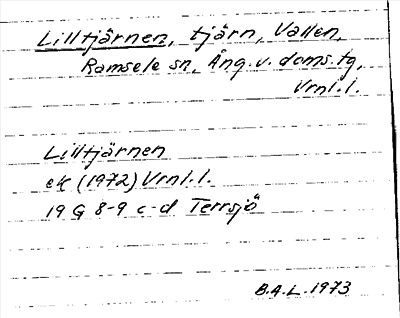 Lilltjärnen, tjärn, Vallen,
Ramsele sn, Ång. v. doms. tg,
Vrnl. l.
Lilltjärnen
ek (1972) Vrnl. l.
19 G 8-9 c-d Terrsjö
B.A.L. 1973